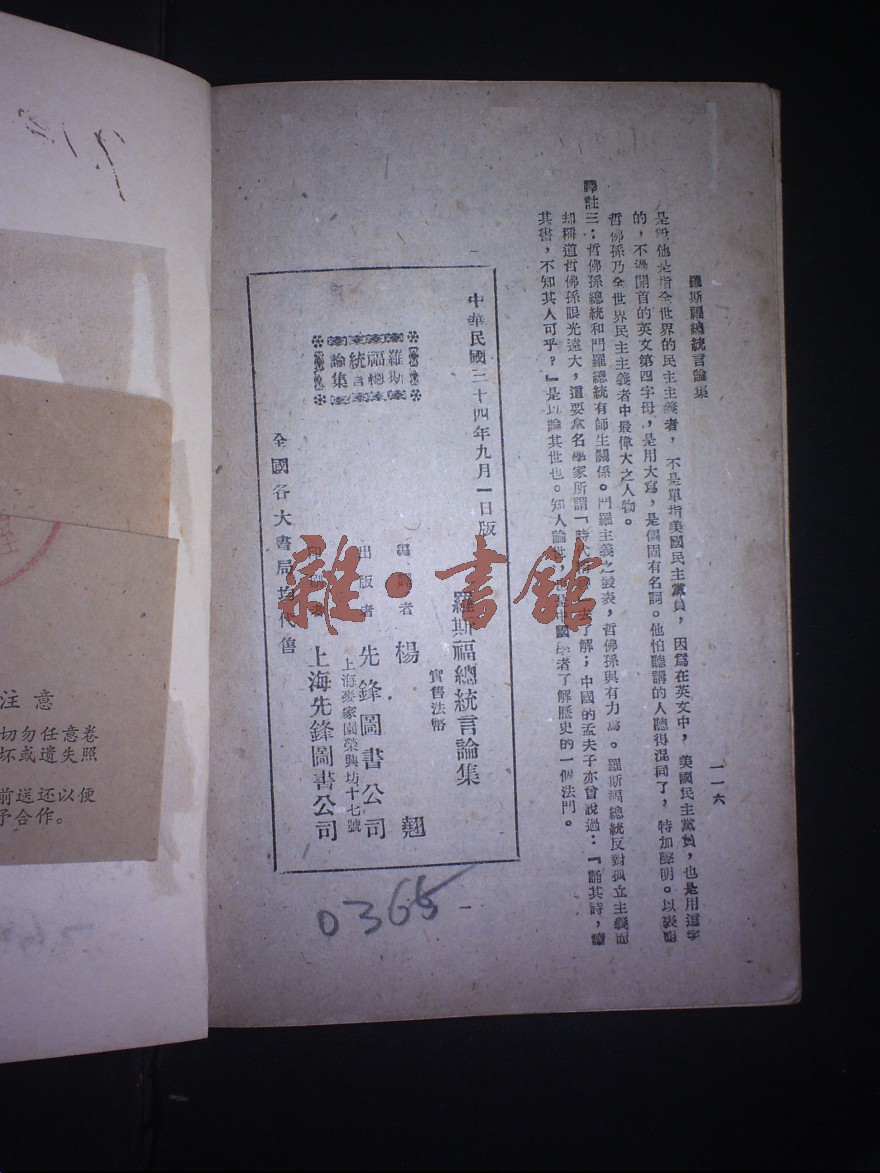 羅斯福總統言論集
一一六
是說他是指全世界的民主主義者，不是單指美國民主黨員，因爲在英文中，美國民主黨員，也是用這字
的，不過開首的英文第四字母，是用大寫，是個固有名詞。他怕聽講的人聽得混同了，特加聲明。以表明
哲佛孫乃全世界民主主義者中最偉大之人物。
譯註三：哲佛孫總統和門羅總統有師生關係。門羅主義之發表，哲佛孫與有力焉。羅斯福總統反對孤立主義而
却稱道哲佛孫眼光遠大，這要拿名學家所謂「時 去了解；中國的孟夫子亦曾說過：『誦其詩，讀
其書，不知其人可乎？』是以論其世也。知人論世， 是中國學者了解歷史的一個法門。
中華民國三十四年九月一日版
羅斯福總統言論集
實售法幣
編譯者 楊翹
出版者 先鋒圖書公司
上海麥家園榮興坊十七號
印刷者 上海先鋒圖書公司
全國各大書局均代售
羅斯
福總
統言
論集
雜·書館
0365
注意
切勿任意卷
坏或遺失照
前送还以便
予合作。